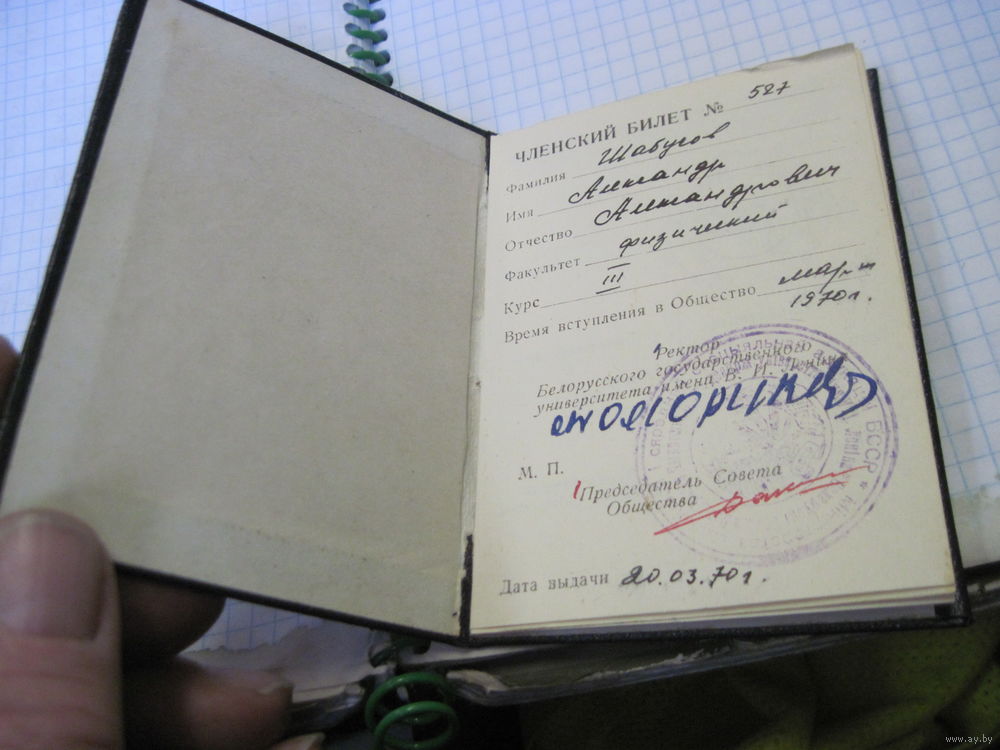 ЧЛЕНСКИЙ БИЛЕТ № 527
Фамилия Шабусов
Имя Александр
Отчество Александрович
Факультет физический
Курс III
Время вступления в Общество март
1970г.
Ректор
Белорусского государственного
университета имени В. И. Ленина
М. П.
Председатель Совета
Общества
Дата выдачи 20.03.70г.
БССР
www.ay.by